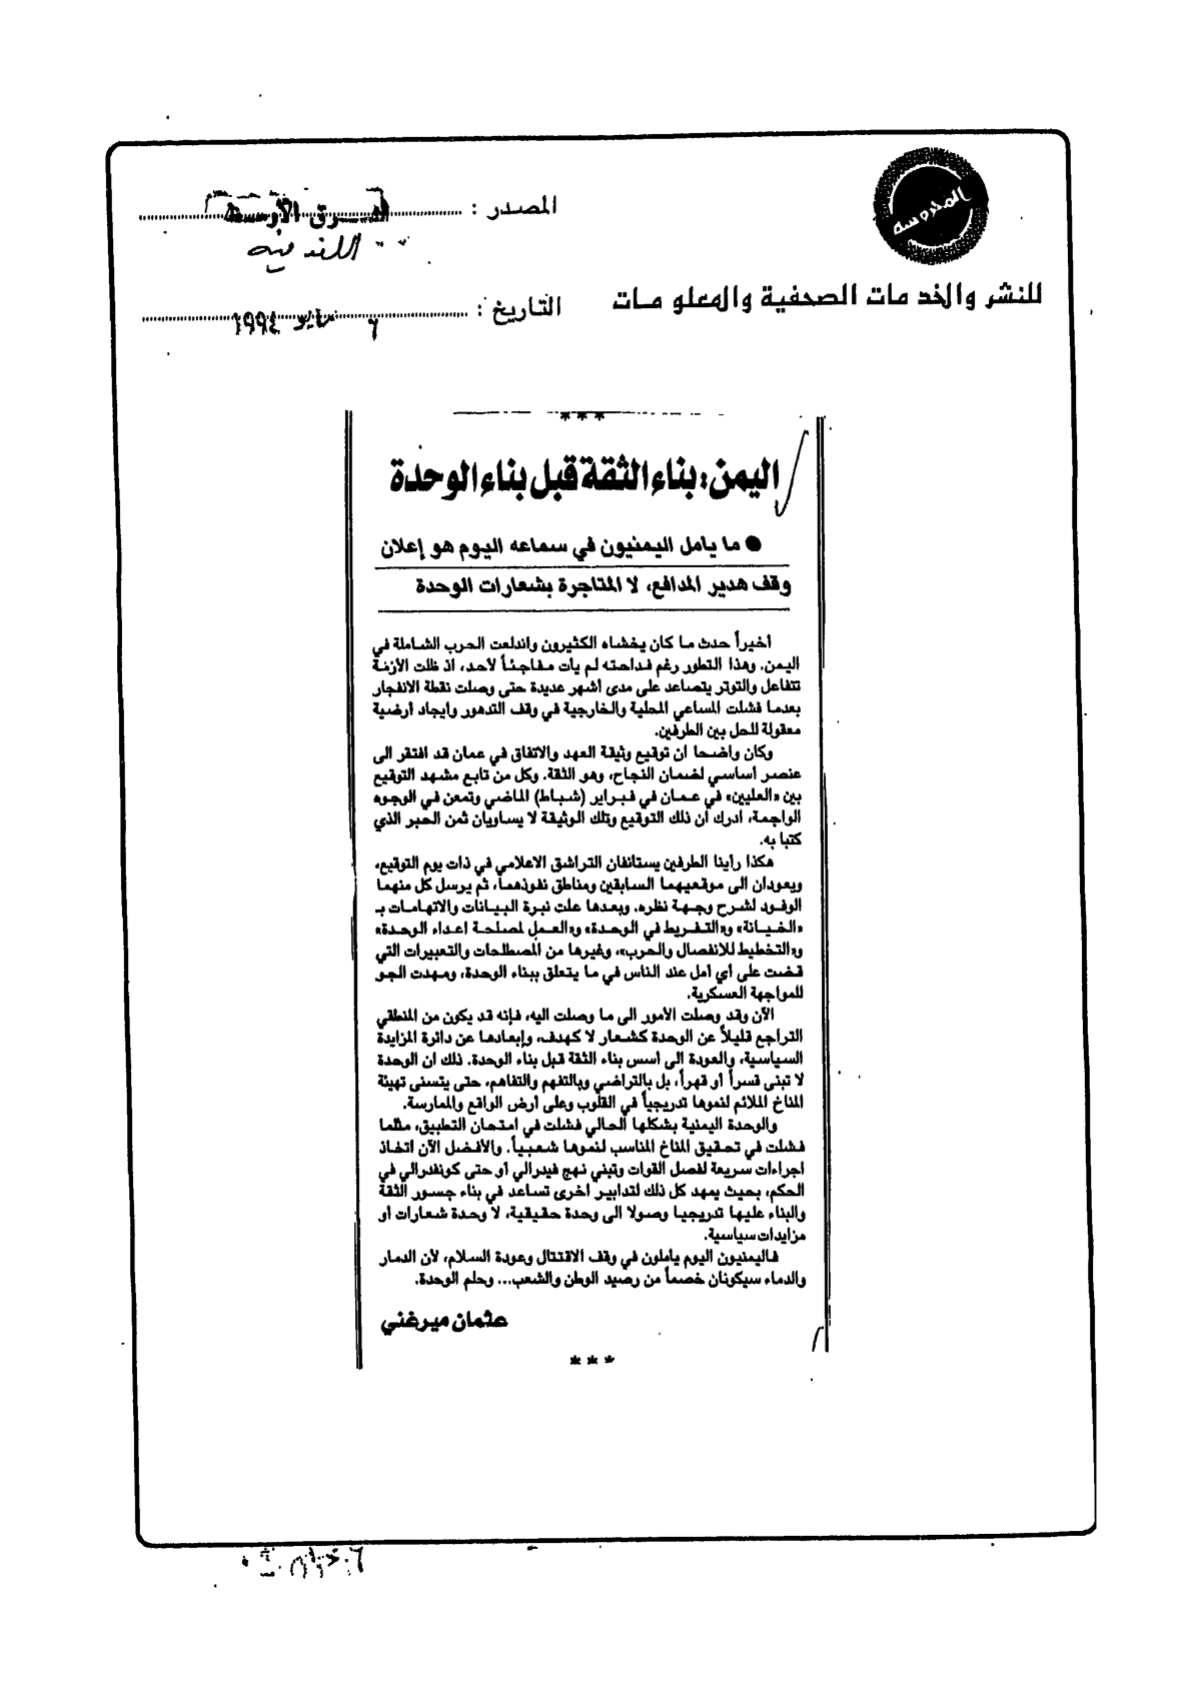 المحروسة
المصدر : الشرق الأوسط
اللندنيه
للنشر والخدمات الصحفية والمعلومات
التاريخ : ٦ مايو ١٩٩٤
***
اليمن: بناء الثقة قبل بناء الوحدة
● ما يامل اليمنيون في سماعه اليوم هو إعلان
وقف هدير المدافع، لا المتاجرة بشعارات الوحدة
اخيراً حدث ما كان يخشاه الكثيرون واندلعت الحرب الشاملة في
اليمن. وهذا التطور رغم فداحته لم يات مفاجئاً لاحد، اذ ظلت الأزمة
تتفاعل والتوتر يتصاعد على مدى أشهر عديدة حتى وصلت نقطة الانفجار
بعدما فشلت المساعي المحلية والخارجية في وقف التدهور وايجاد أرضية
معقولة للحل بين الطرفين.
وكان واضحا ان توقيع وثيقة العهد والاتفاق في عمان قد افتقر الى
عنصر أساسي لضمان النجاح، وهو الثقة. وكل من تابع مشهد التوقيع
بين «العليين» في عمان في فبراير (شباط) الماضي وتمعن في الوجوه
الواجمة، ادرك ان ذلك التوقيع وتلك الوثيقة لا يساويان ثمن الحبر الذي
كتبا به.
هكذا رأينا الطرفين يستانفان التراشق الاعلامي في ذات يوم التوقيع،
ويعودان الى موقعيهما السابقين ومناطق نفوذهما، ثم يرسل كل منهما
الوفود لشرح وجهة نظره. وبعدها علت نبرة البيانات والاتهامات بـ
«الخيانة» و«التفريط في الوحدة» و«العمل لمصلحة اعداء الوحدة»
و«التخطيط للانفصال والحرب»، وغيرها من المصطلحات والتعبيرات التي
قضت على أي امل عند الناس في ما يتعلق ببناء الوحدة، ومهدت الجو
للمواجهة العسكرية.
الآن وقد وصلت الأمور الى ما وصلت اليه، فإنه قد يكون من المنطقي
التراجع قليلاً عن الوحدة كشعار لا كهدف، وإبعادها عن دائرة المزايدة
السياسية، والعودة الى اسس بناء الثقة قبل بناء الوحدة. ذلك ان الوحدة
لا تبنى قسراً أو قهراً، بل بالتراضي وبالتفهم والتفاهم، حتى يتسنى تهيئة
المناخ الملائم لنموها تدريجياً في القلوب وعلى أرض الواقع والممارسة.
والوحدة اليمنية بشكلها الحالي فشلت في امتحان التطبيق، مثلما
فشلت في تحقيق المناخ المناسب لنموها شعبياً. والافضل الآن اتخاذ
اجراءات سريعة لفصل القوات وتبني نهج فيدرالي أو حتى كونفدرالي في
الحكم، بحيث يمهد كل ذلك لتدابير اخرى تساعد في بناء جسور الثقة
والبناء عليها تدريجيا وصولا الى وحدة حقيقية، لا وحدة شعارات أو
مزايدات سياسية.
فاليمنيون اليوم ياملون في وقف الاقتتال وعودة السلام، لأن الدمار
والدماء سيكونان خصماً من رصيد الوطن والشعب... وحلم الوحدة.
عثمان ميرغني
***